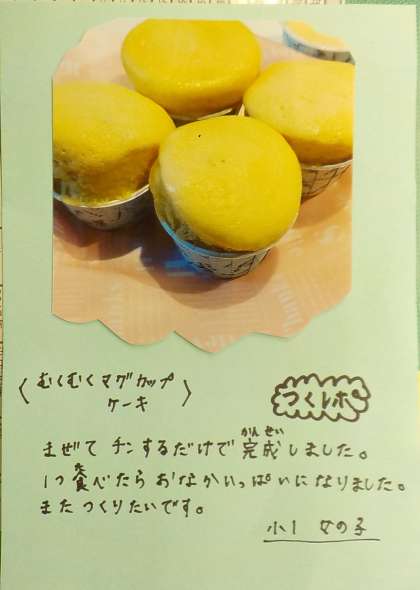 〈むくむくマグカップ
ケーキ〉
つくレポ
まぜて チンするだけで 完成しました。
かんせい
1つ 食べたら おなかいっぱいになりました。
た
また つくりたいです。
小1 女の子